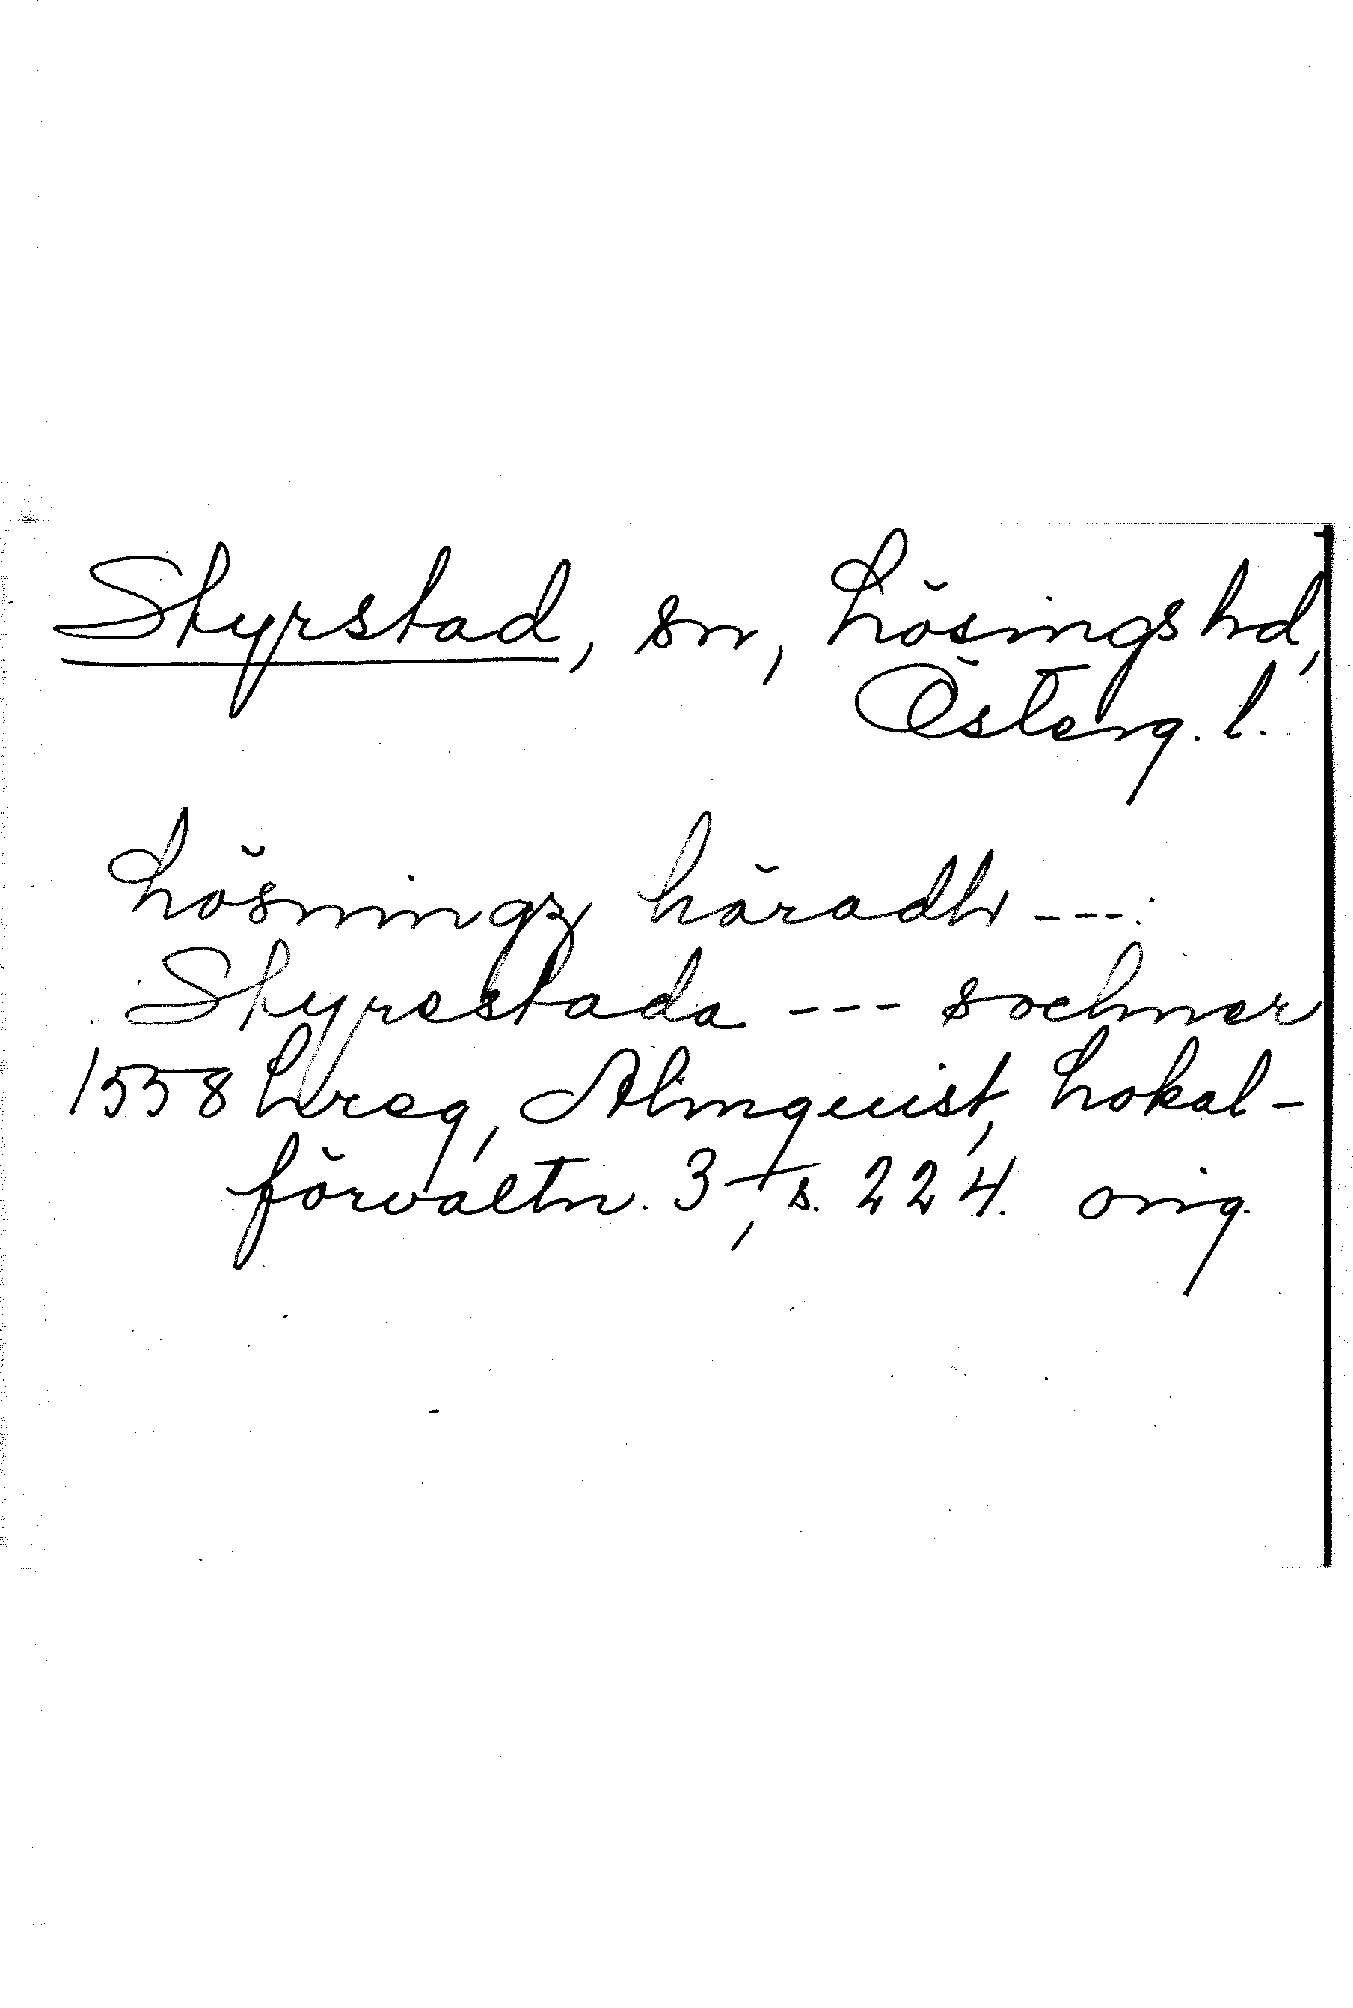 Styrstad, sn, Lösings hd,
Österg. l.
Lösningz häradh ---:
Styrestada --- sochner
1558 Lreg, Almquist, Lokal-
förvaltn. 3, s. 224. orig.